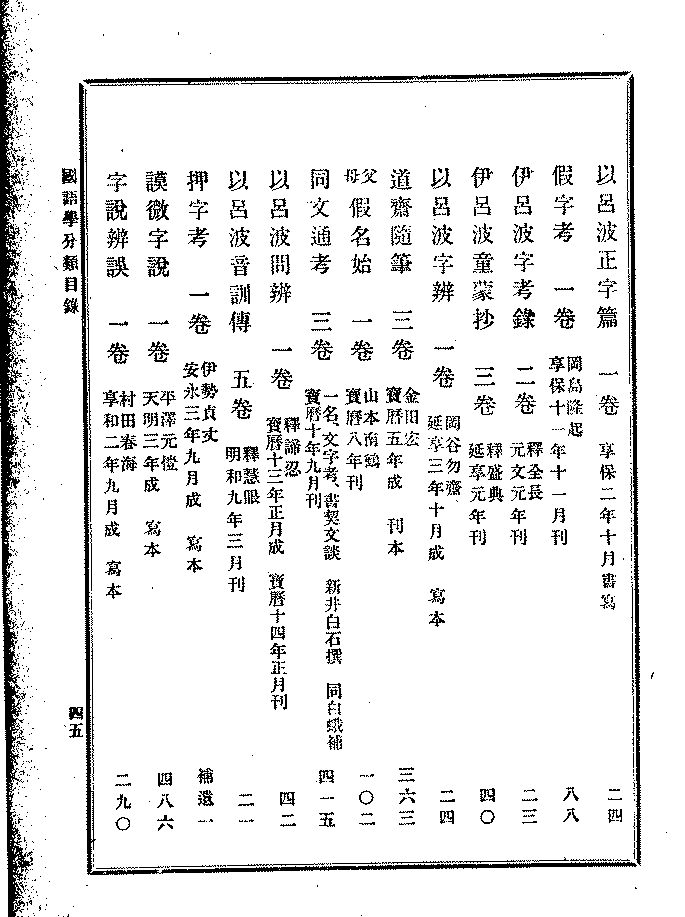 以呂波正字篇　一卷　享保二年十月書寫　二四
假字考　一卷　岡島隆起　享保十一年十一月刊　八八
伊呂波字考錄　二卷　釋全長　元文元年刊　二三
伊呂波童蒙抄　三卷　釋盛典　延享元年刊　四〇
以呂波字辨　一卷　岡谷勿齋　延享三年十月成　寫本　二四
道齋隨筆　三卷　金田宏　寶曆五年成　刊本　三六三
父母假名始　一卷　山本南鶴　寶曆八年刊　一〇二
同文通考　三卷　一名、文字考、書契文談　新井白石撰　同白蛾補　寶曆十年九月刊　四一五
以呂波問辨　一卷　釋諦忍　寶曆十三年正月成　寶曆十四年正月刊　四二
以呂波音訓傳　五卷　釋慧眼　明和九年三月刊　二一
押字考　一卷　伊勢貞丈　安永三年九月成　寫本　補遺一
謨微字說　一卷　平澤元愷　天明三年成　寫本　四八六
字說辨誤　一卷　村田春海　享和二年九月成　寫本　二九〇
國語學分類目錄　四五